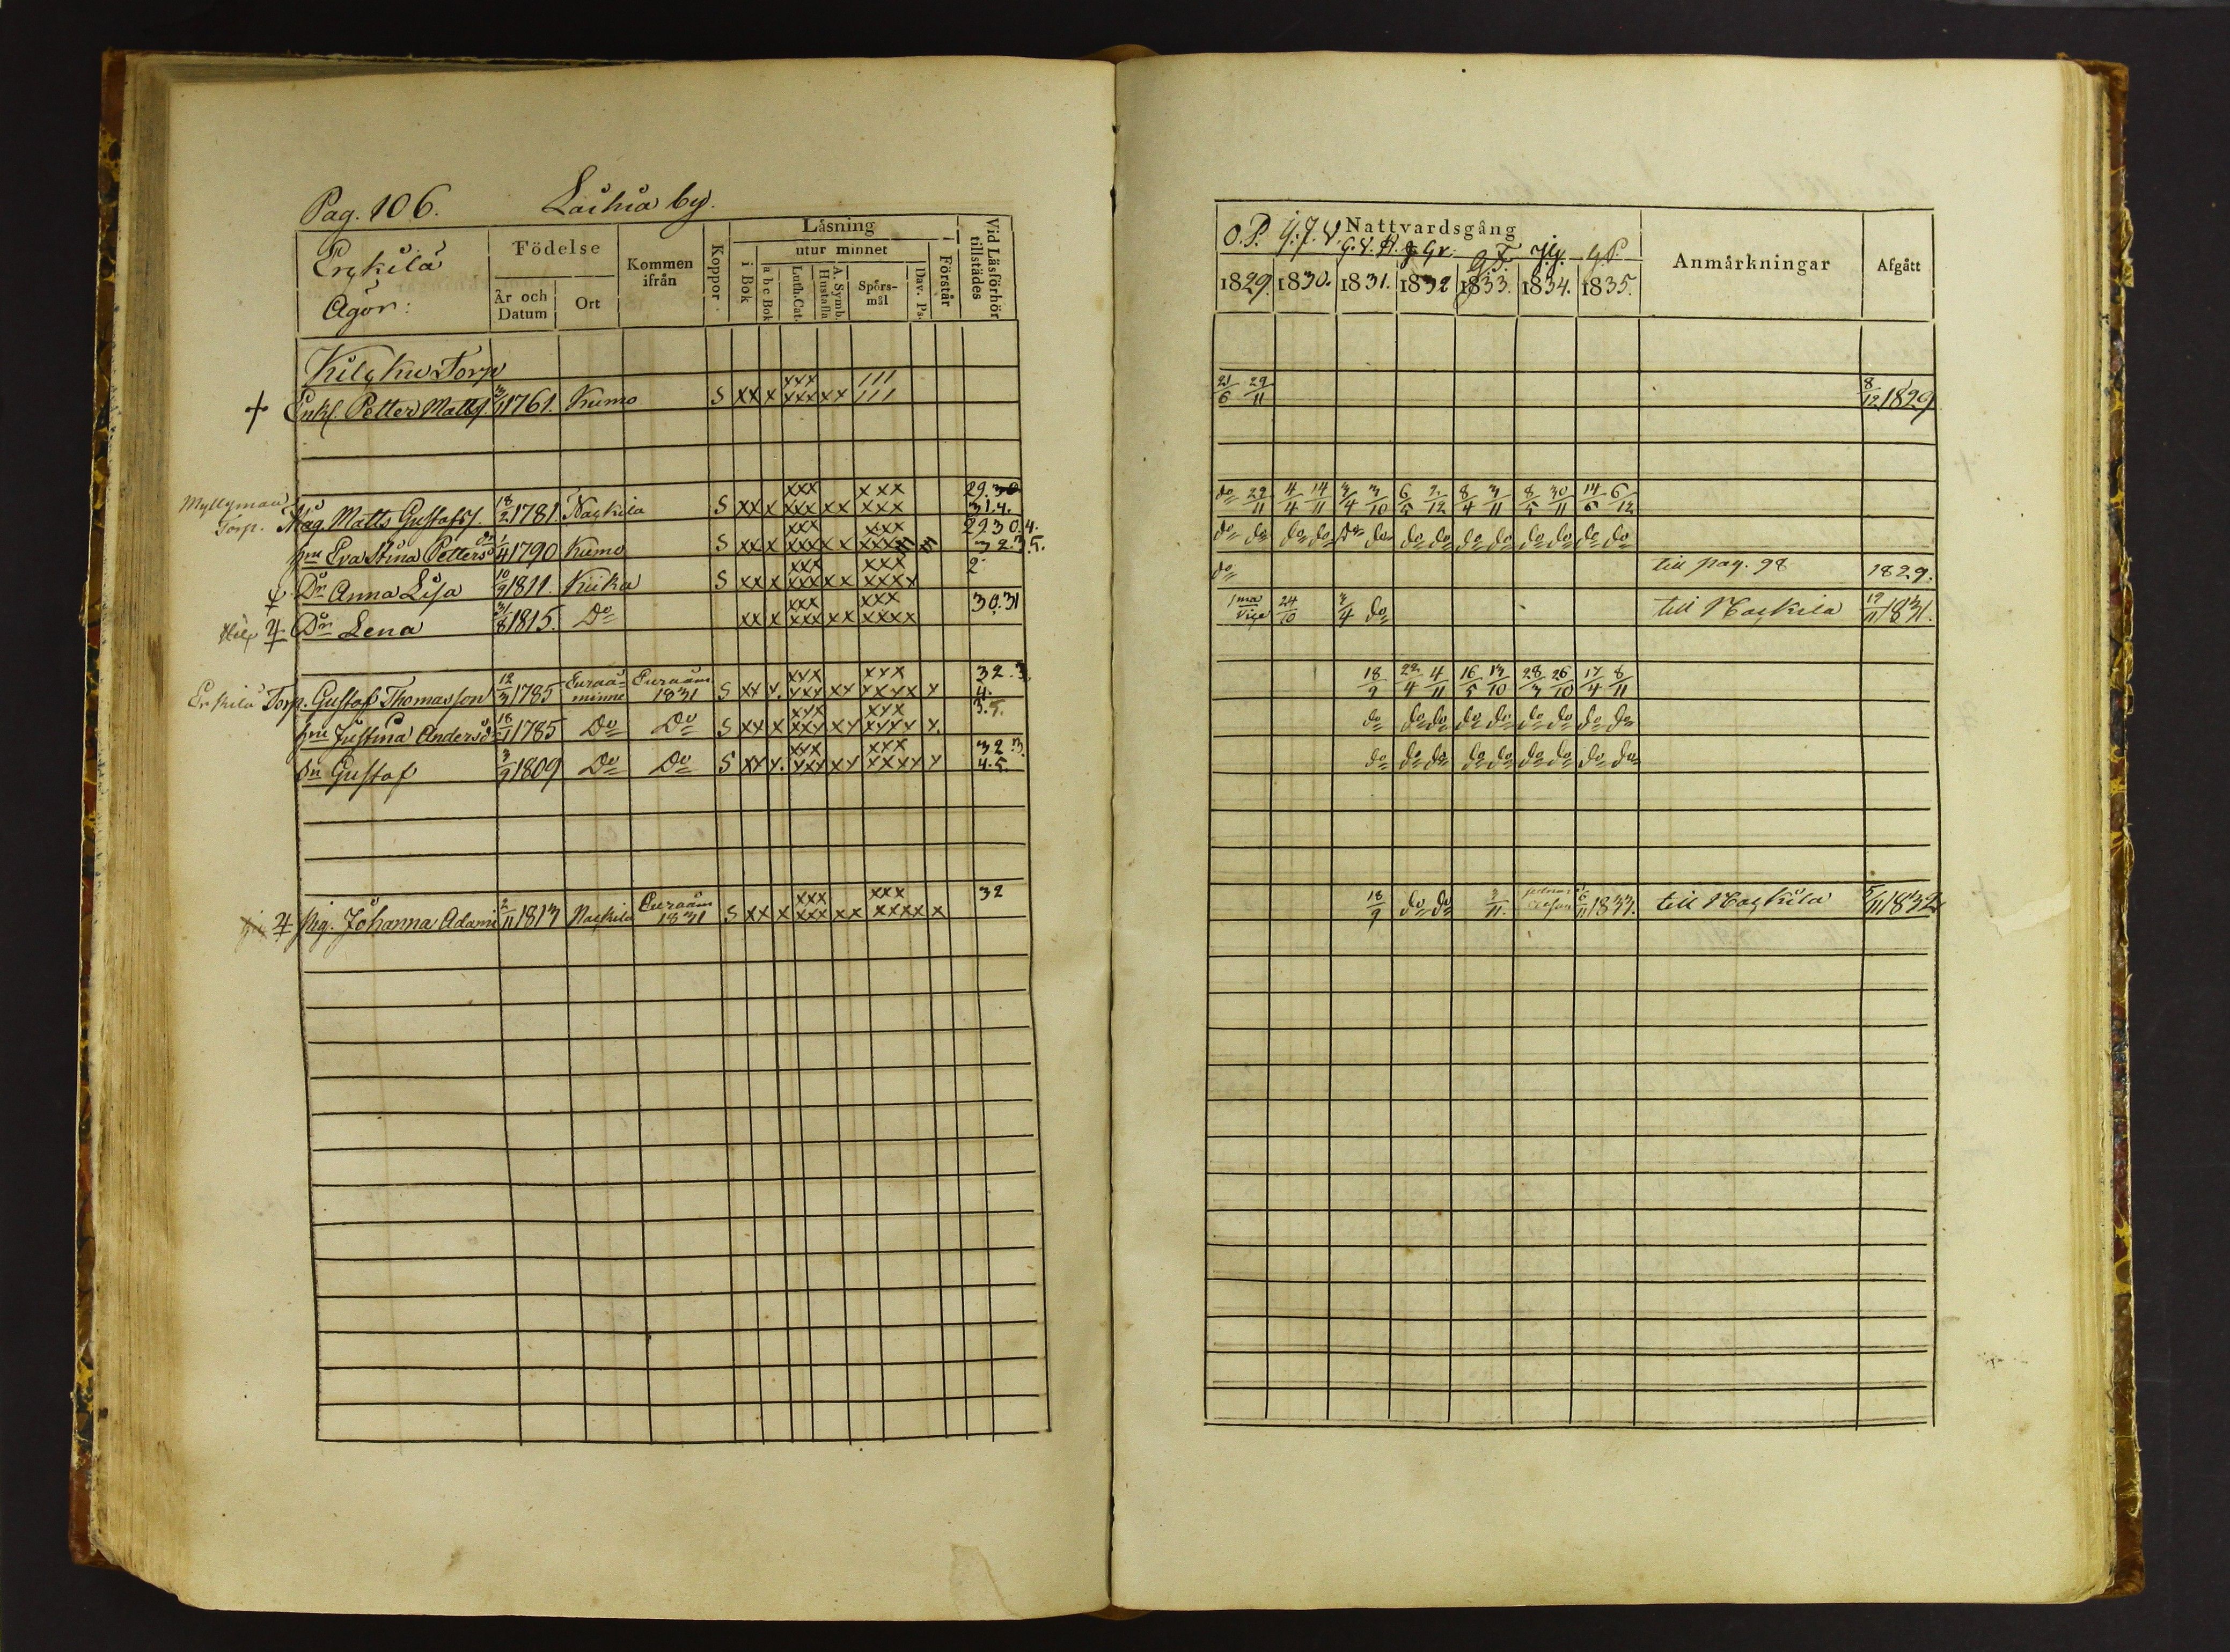 Pag. 106. Laihia by.
Erckilä
Ägor:
Födelse
År och Datum
Ort
Kommen ifrån
Koppor
Läsning
utur minnet
i Bok
a b c Bok
Luth. Cat.
A. Symb. Hustafla
Spörs-mål
Dav. Ps.
Förstår
Vid Läsförhör tillstädes
Torp
+ Enkl. Petter Matts. 3/11 1761. Kumo S xx x xxx xxx xx /// ///
Myllymaa Torp. Måg Matts Gustafss. 18/2 1781. Naskila S xx x xxx xxx xx xxx xxx 29. 30 31. 4.
hu Eva Stina Petters dr 1/4 1790 Kumo S xx x xxx xxx xx xxx 29 30 4. 32. 3. 5.
Dr. Anna Lisa 10/9 1811. Kiika S xx x xxx xxx xx xxx xxxx 2
Dr Lena 31/8 1815. Do xx x xxx xxx xx xxx xxxx 30. 31
Erkilä Torp. Gustaf Thomasson 12/3 1785 Euraå-minne Euraåm 1831 S xx x. xxx xxx xx xxx xxxx x 32. 3. 4.
hu Justina Andersdr 18/1 1785 Do Do S xx x xxx xxx xx xxx xxxx x. 3. 5.
Sn Gustaf 3/9 1809 Do Do S xx x. xxx xxx xx xxx xxxx x 32 3. 4. 5.
Pig. Johanna Adami 2/11 1813 Naskila Euraåm 1831 S xx x xxx xxx xx xxx xxxx x 32
Nattvardsgång
O. P. G. V. R. G. P.
1829. 1830. 1831. 1832 1833. 1834. 1835.
Anmärkningar
Afgått
21/6 29/11 8/12 1829
do 29/11 4/4 14/11 3/4 3/10 6/5 2/12 8/4 3/11 8/5 30/11 14/6 6/12
do do do do do do do do do do do do do do
do till pag. 98 1829.
1ma vice 24/10 3/4 do till Naskila 19/11 1831.
18/9 22/4 4/11 16/5 13/10 28/3 26/10 17/4 8/11
do do do do do do do do do
do do do do do do do do do
18/9 do do 2/11. 6/11 1833. till Naskila 5/11 1832